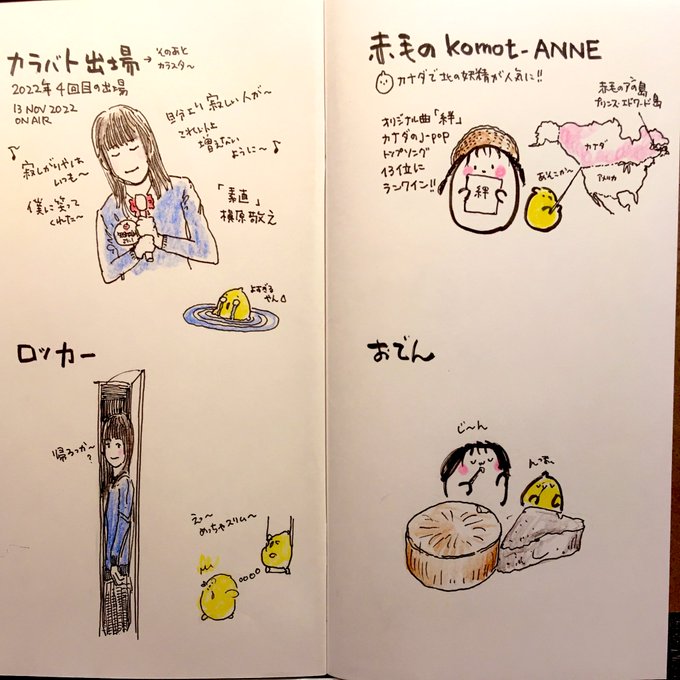 カラバト出場→そのあと
カラスタ〜
2022年4回目の出場
13 NOV 2022
ON AIR
自分より寂しい人が〜
これ以上
増えない
ように〜
寂しがりやは
いつも〜
僕に笑って
くれた〜
「素直」
槇原敬之
よすぎる
やん
ロッカー
帰ろっか〜
?
え〜
めっちゃスリム〜
赤毛のkomot-ANNE
カナダで北の妖精が人気に!!
赤毛のアンの島
プリンス・エドワード島
オリジナル曲「絆」
カナダのJ-pop
トップソング
13位に
ランクイン!!
絆
あそこか〜
カナダ
アメリカ
おでん
じ〜ん